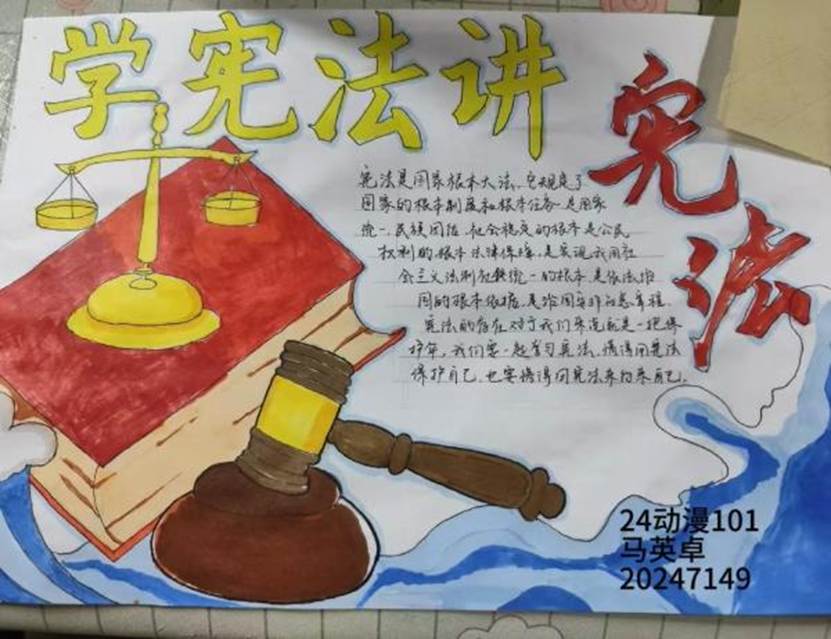 学宪法讲
宪法
宪法是国家根本大法,它规定了
国家的根本制度和根本任务.是国家
统一,民族团结,社会稳定的根本是公民
权利的根本法律保障,是实现我国社
会主义法制社统一的根本,是依法治
国的根本依据,是治国安邦的总章程.
宪法的存在对于我们来说就是一把保
护伞,我们要一起学习宪法,懂得用宪法
保护自己,也要懂得用宪法来约束自己.
24动漫101
马英卓
20247149